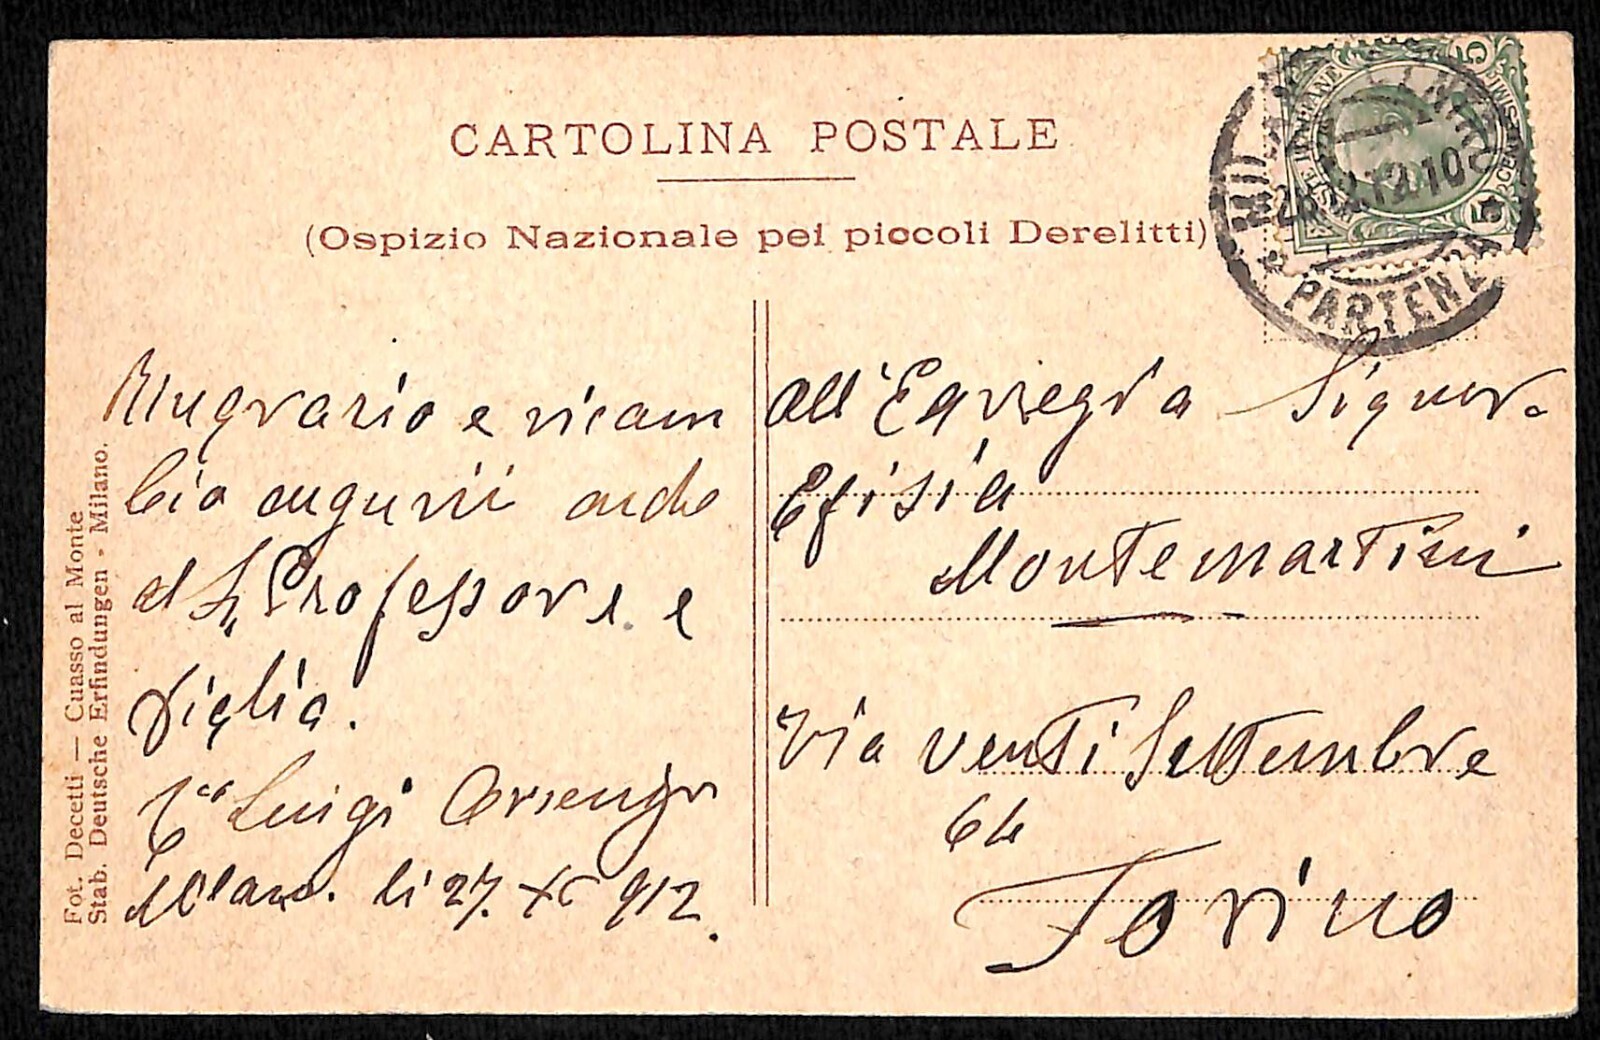 CARTOLINA POSTALE
(Ospizio Nazionale pei piccoli Derelitti)
MILANO
12.10
PARTENZA
POSTE ITALIANE
5 CENT 5
Fot. Decetti — Cuasso al Monte
Stab. Deutsche Erfindungen - Milano.
Ringrazio e ricam
bio augurii anche
al Sr. Professore e
figlia.
Luigi
Milano. li 27. XI 912.
All'Egregia Signora
Efisia
Montemartini
Via Venti Settembre
64
Torino